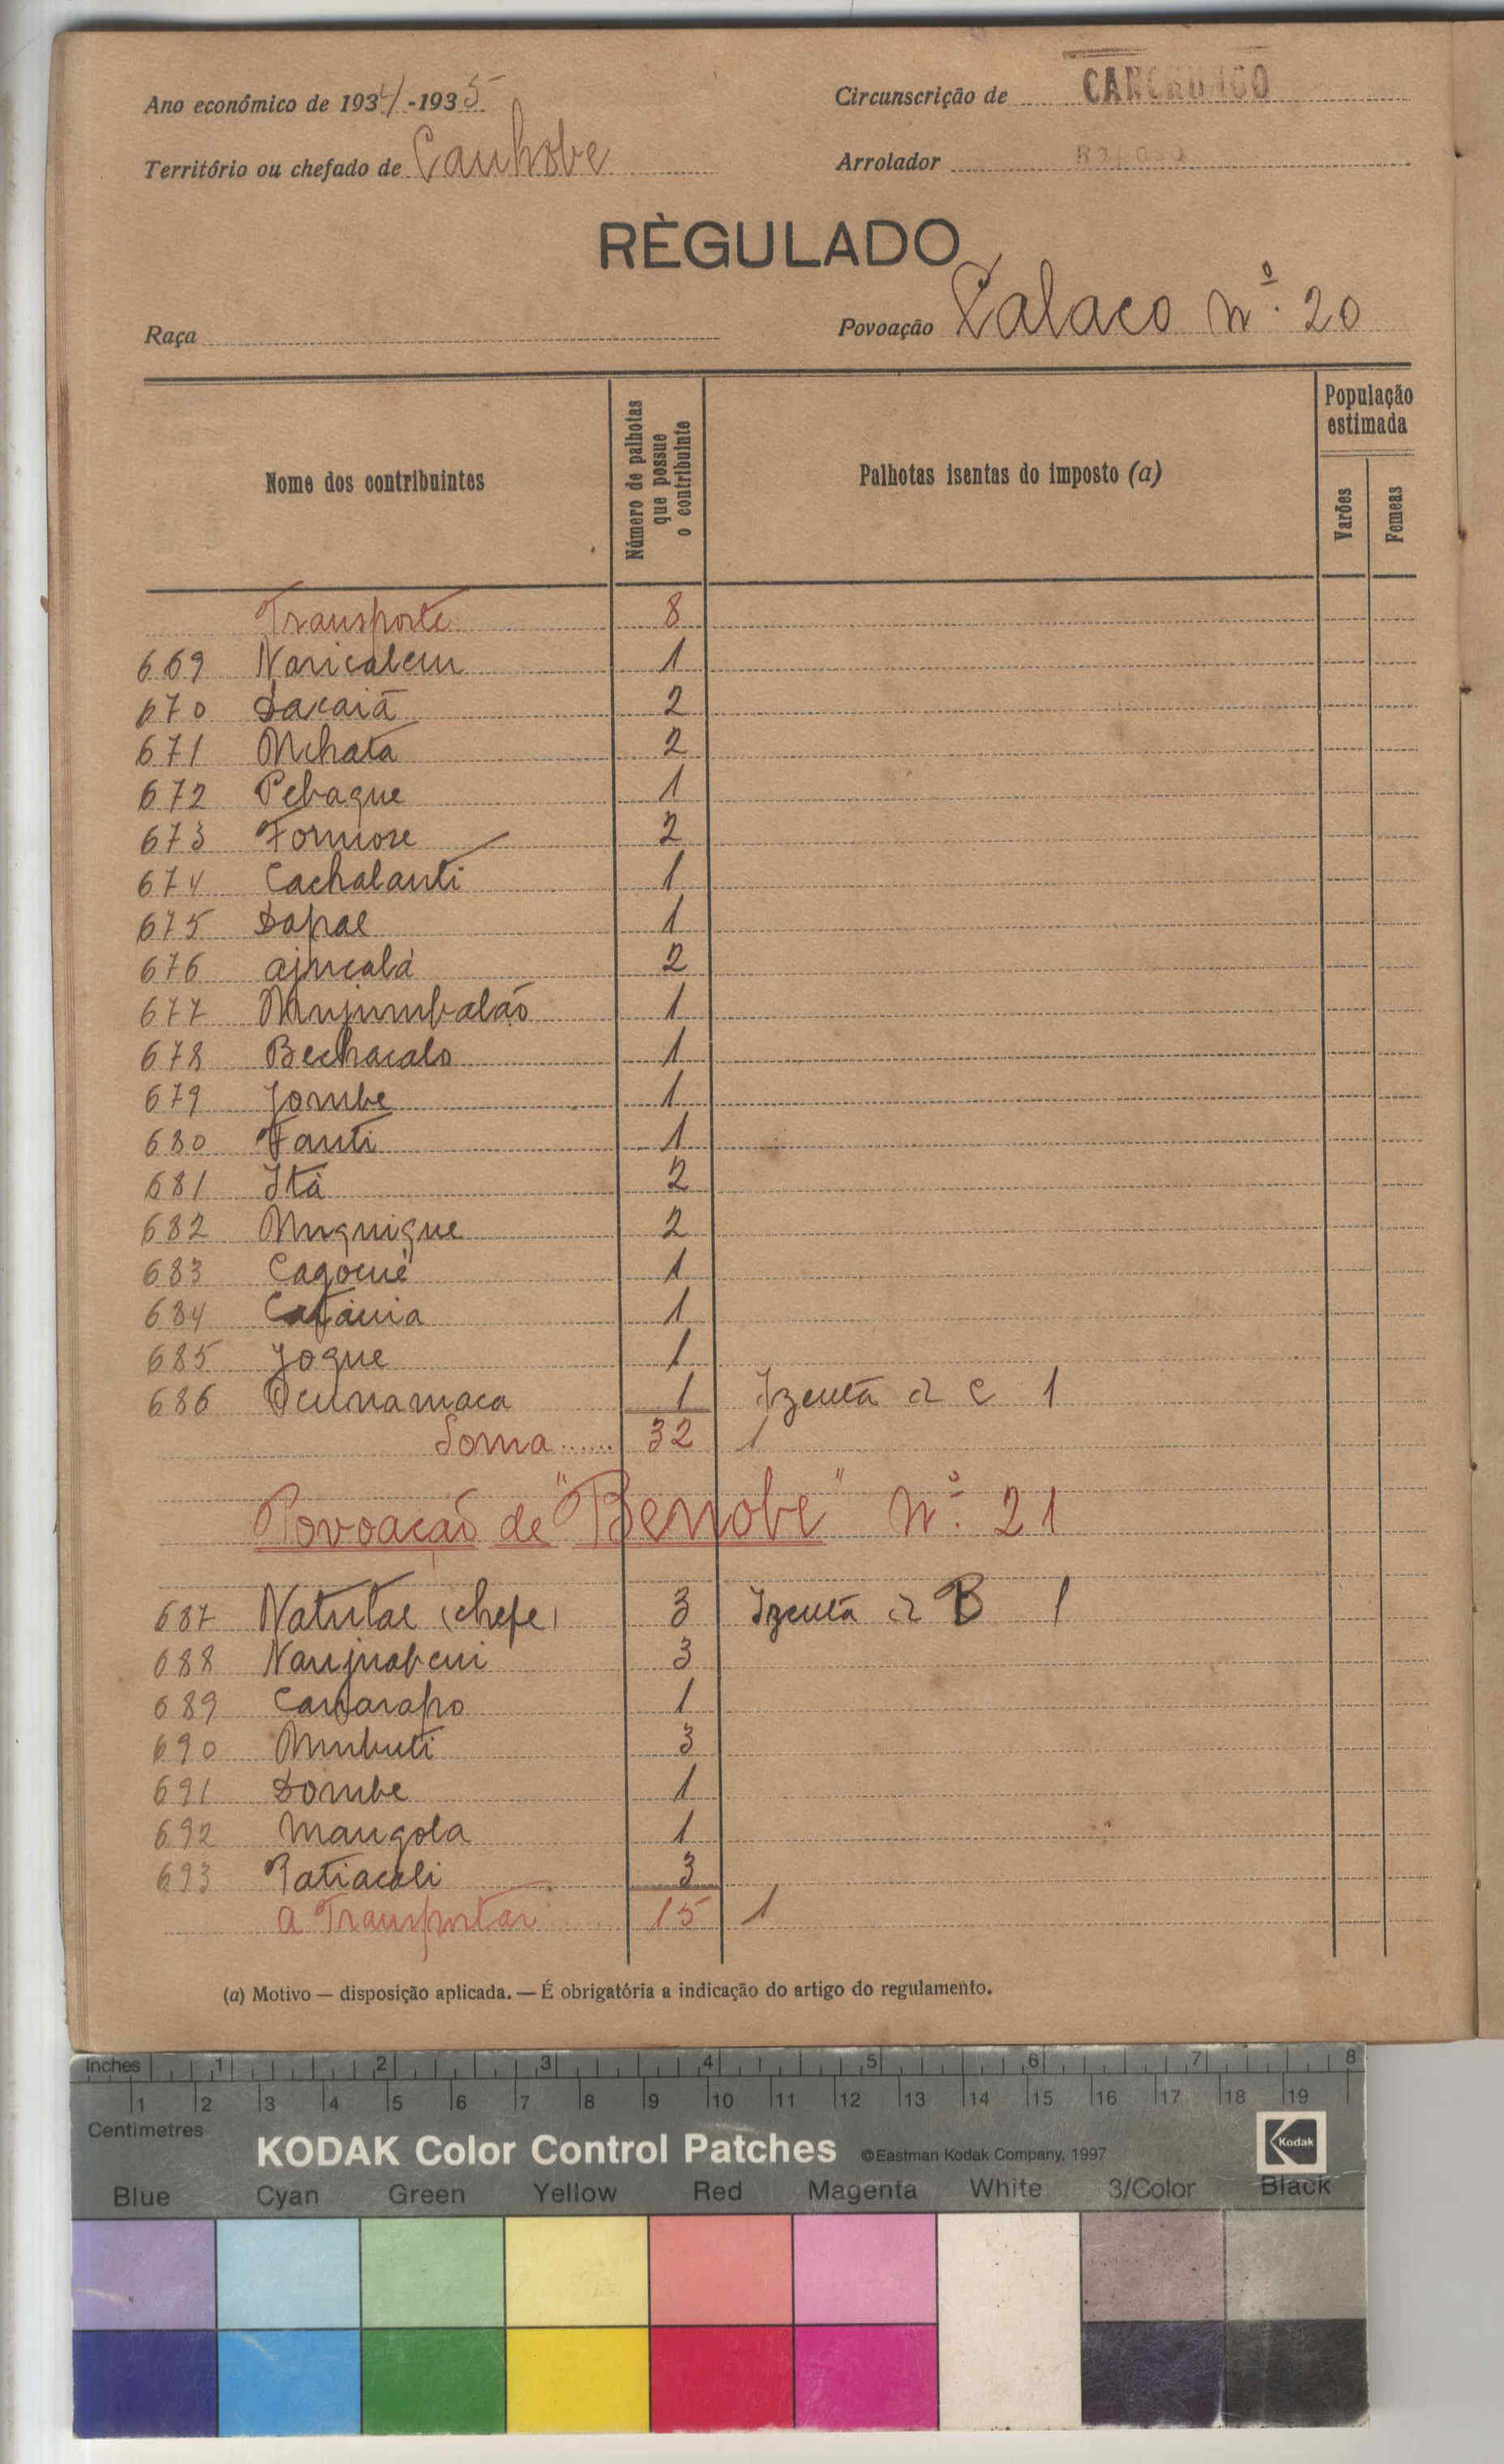 Ano económico de 1934-1935
Circunscrição de CANCHUNGO
Território ou chefado de Canhobe
Arrolador
RÈGULADO
Raça
Povoação Calaco nº. 20
Nome dos contribuintes
Número de palhotas que possue o contribuinte
Palhotas isentas do imposto (a)
População estimada
Varões
Femeas
Transporte 8
669 Naricalem 1
670 Dacaiã 2
671 Mchata 2
672 Pebaque 1
673 Formose 2
674 Cachalanti 1
675 Dapae 1
676 Ajucalá 2
677 Mujumbalão 1
678 Bechacalo 1
679 Jombe 1
680 Fanti 1
681 Itá 2
682 Muquique 2
683 Cagocué 1
684 Catánia 1
685 Joque 1
686 Ocunamaca 1 Izentã a c 1
Soma...... 32 1
Povoação de "Benobe" nº. 21
687 Natutae (chefe) 3 Izentã a B 1
688 Nanjuabem 3
689 Canarapo 1
690 Mubuti 3
691 Dombe 1
692 Mangola 1
693 Patiacali 3
a Transportar 15 1
(a) Motivo — disposição aplicada. — É obrigatória a indicação do artigo do regulamento.
Inches 1 2 3 4 5 6 7 8
1 2 3 4 5 6 7 8 9 10 11 12 13 14 15 16 17 18 19
Centimetres
KODAK Color Control Patches ©Eastman Kodak Company, 1997 Kodak
Blue Cyan Green Yellow Red Magenta White 3/Color Black